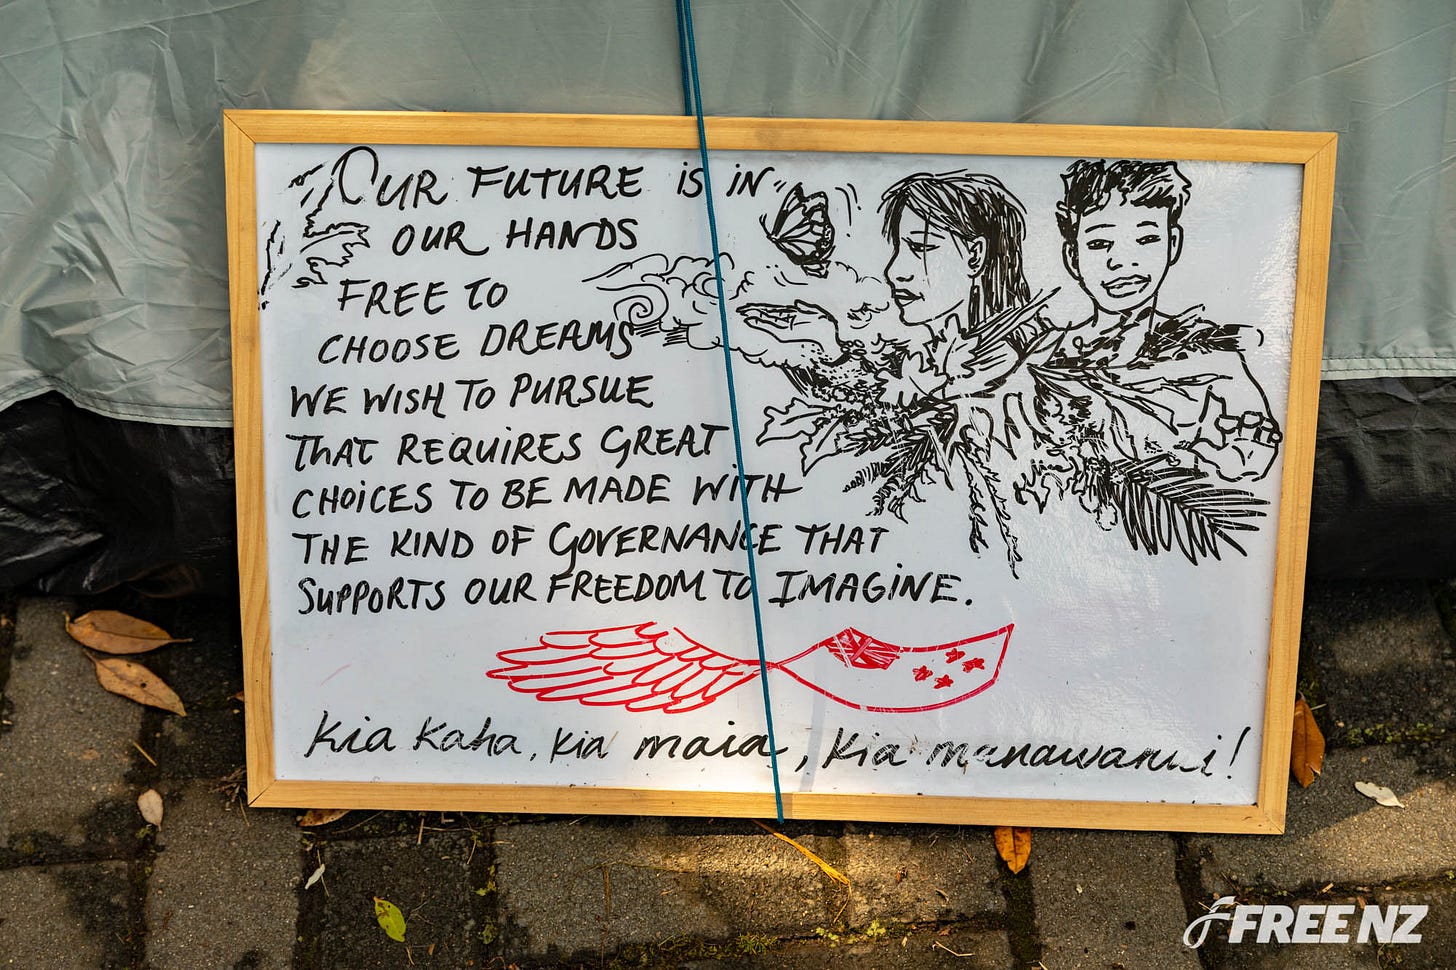 OUR FUTURE is iN
OUR HANDS
FREE TO
CHOOSE DREAMS
WE WISH TO PURSUE
THAT REQUIRES GREAT
CHOICES TO BE MADE WITH
THE KIND OF GOVERNANCE THAT
SUPPORTS OUR FREEDOM TO IMAGINE.
Kia Kaha, Kia maia, Kia manawanui!
FREE NZ